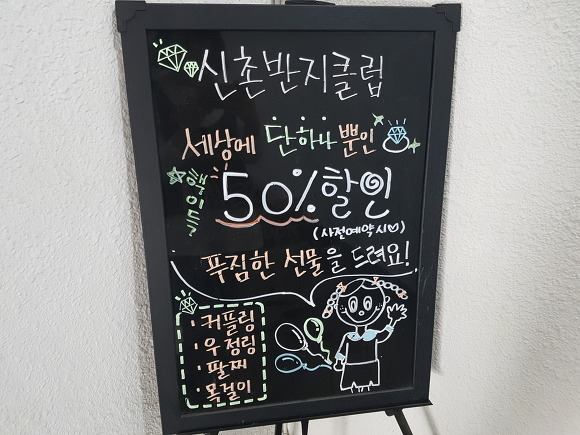 신촌반지클럽
세상에 단하나 뿐인
핸메이드
50% 할인
(사전예약시♡)
푸짐한 선물을 드려요!
· 커플링
· 우정링
· 팔찌
· 목걸이